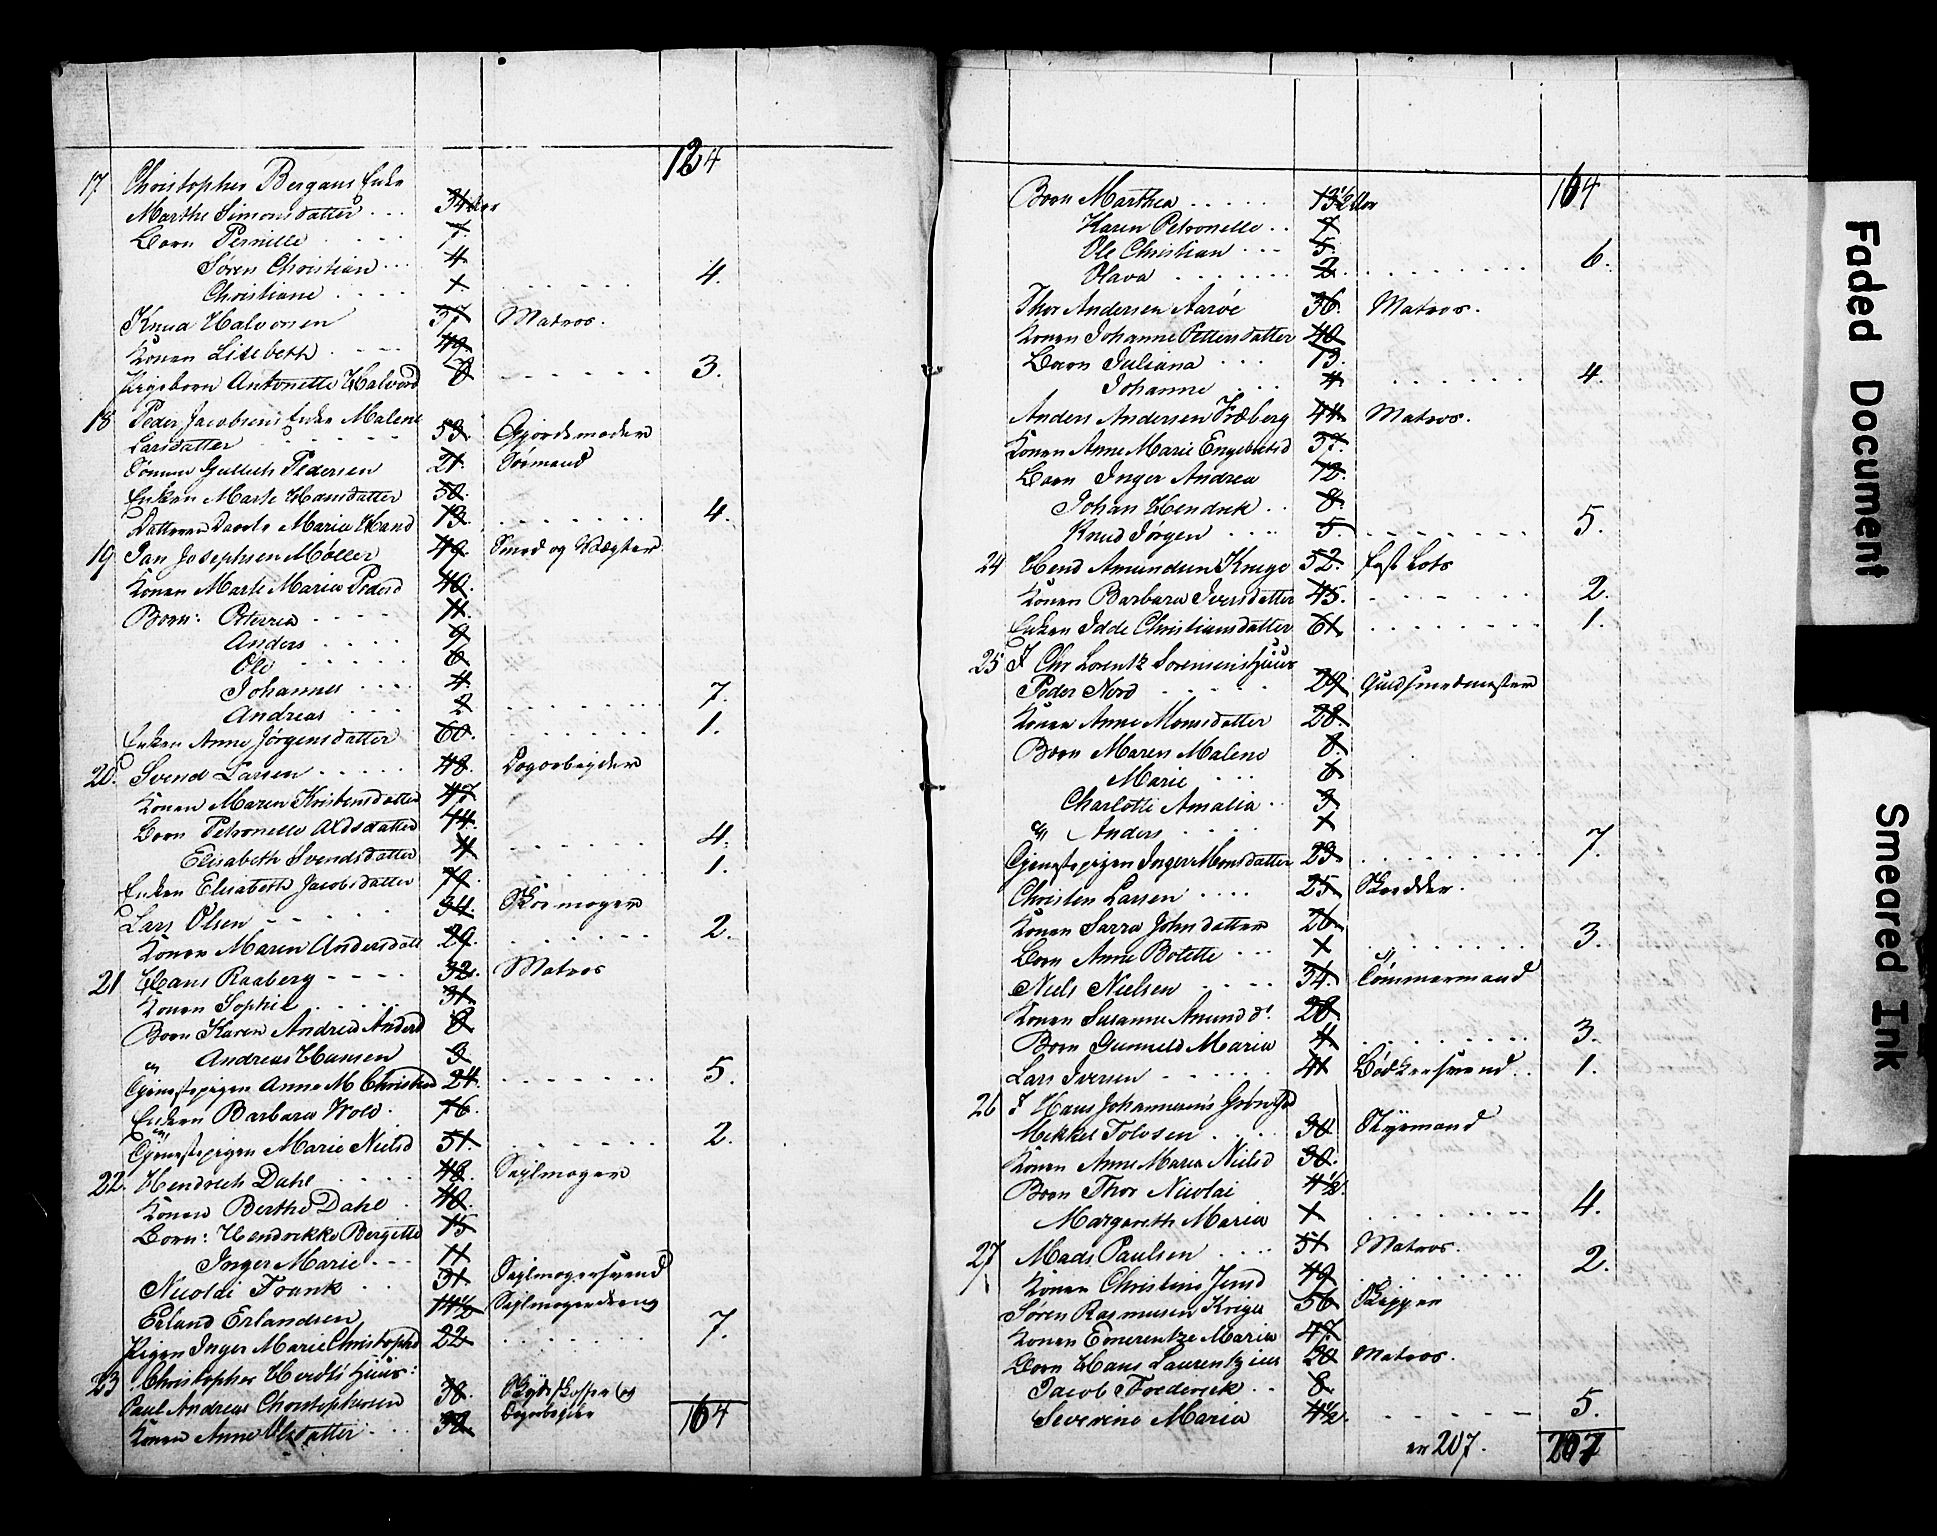 124
17 Christopher Bergans Enke
Marthe Simonsdatter . . . 34 Aar
Børn Pernille . . . . 7.
Søren Christian . . . 4
Christiane . . . . 1. . . . . . . 4.
Knud Halvorsen 37 Matros.
Konen Lisebeth . . . . 49
Pigebarn Antonette Halvord 8 . . . . . . 3.
18 Peder Jacobsens Enke Malene
Larsdatter . . . . . 53. Gjordemoder
Sønnen Gullich Pedersen 21. Sømand
Enken Marte Hansdatter 50.
Datteren Dorte Maria Hansd 13. . . . . . . 4.
19 Jan Josephsen Møller 49. Smed og Vægter
Konen Marte Maria Pedersd 40.
Børn: Oterria . . . . 11.
Anders . . . . 9
Ole . . . . . 6
Johannes . . . . 4.
Andreas . . . 2 . . . . . . . 7.
Enken Anne Jørgensdatter 60. . . . . . . 1.
20. Svend Larsen . . . . . 48. Dagarbejder
Konen Maren Kristensdatter 47
Børn Petronelle Aldsdatter 14.
Elisabeth Svendsdatter 4. . . . . . . 4.
Enken Elisabeth Jacobsdatter 79. . . . . . 1.
Lars Olsen - - - - 34. Skoemager
Konen Maren Andersdatt 29. . . . . . . 2.
21 Hans Raaberg - - - - 32. Matros
Konen Sophie . . . . . 31.
Børn Karen Andrea Andersd 8
" Andreas Hansen 3
Tjenestepigen Anne M Christend 24. . . . . . . 5.
Enken Barbara Wold . 76.
Tjenestepigen Marie Nielsd 51. . . . . . . 2.
22. Hendrich Dahl . . . . . 48. Sejlmager
Konen Berthe Dahl . 40.
Børn: Hendrikke Bergitte 15
Inger Marie . . . 11
Nicolai Frank . . 31. Sejlmagersvend
Erland Erlandsen 14½ Sejlmagerdreng
Pigen Inger Marie Christophd 22 . . . . . . 7.
23 Christopher Herdts Huus:
Paul Andreas Christophersen 38. Skydsskaffer og
Dagarbejder
Konen Anne Olsdatter . . . 32. 164
164
Børn Marthea . . . . . 13½ Aar
Karen Petronelle . . 7
Ole Christian . . . 5.
Olava . . . . . . . 2. . . . . . . . 6.
Thor Andersen Aarøe 36. Matros.
Konen Johanne Pettersdatter 40
Børn Juliana . . . 13.
Johanne . . . 4 . . . . . . 4.
Anders Andersen Fræberg 44. Matros.
Konen Anne Marie Engebretsd 37.
Børn Inger Andrea 12.
Johan Hendrik . . 8.
Knud Jørgen . . . . 5. . . . . . . . 5.
24 Hend Amundsen Kruge 52. fast Lots
Konen Barbara Iversdatter 45. . . . . . . 2.
Enken Idde Christiansdatter 61. . . . . . . . 1.
25 I Chr Lorentz Sorensens Huus
Peder Nord . . . . . 29 Guldsmedmester
Konen Anne Monsdatter 28.
Børn Maren Malene 8.
Marie . . . 6
Charlotte Amalia . . 3
" Anders . . . . 1
Tjenestepigen Inger Monsdatter 23. . . . . . . . 7.
Christen Larsen . . . . 25. Skredder.
Konen Sarra Johnsdatter 26.
Børn Anne Botette . . . 1 . . . . . . . 3.
Niels Nielsen . . . . 34. Tømmermand
Konen Susanne Amundd. 28.
Børn Gunneld Maria 4. . . . . . . 3.
Lars Iversen . . . . . . 41 Bødkersvend . . 1.
26 I Hans Johannesens Grønd
Mikkel Tolosen . . . . 30. Styrmand
Konen Anne Maria Nielsd 30.
Børn Thor Nicolai 4½.
Margareth Maria . 1 . . . . . . . 4.
27 Mads Paulsen . . . . 51 Matros.
Konen Christine Jensd 49. . . . . . . . 2.
Søren Rasmusen Kriger 56 Skipper
Konen Emerentze Maria 47.
Børn Hans Laurentzius 20 Matros.
Jacob Frederick . . 8.
Severine Maria 4½. . . . . . 5.
er 207. 207
Faded Document
Smeared Ink